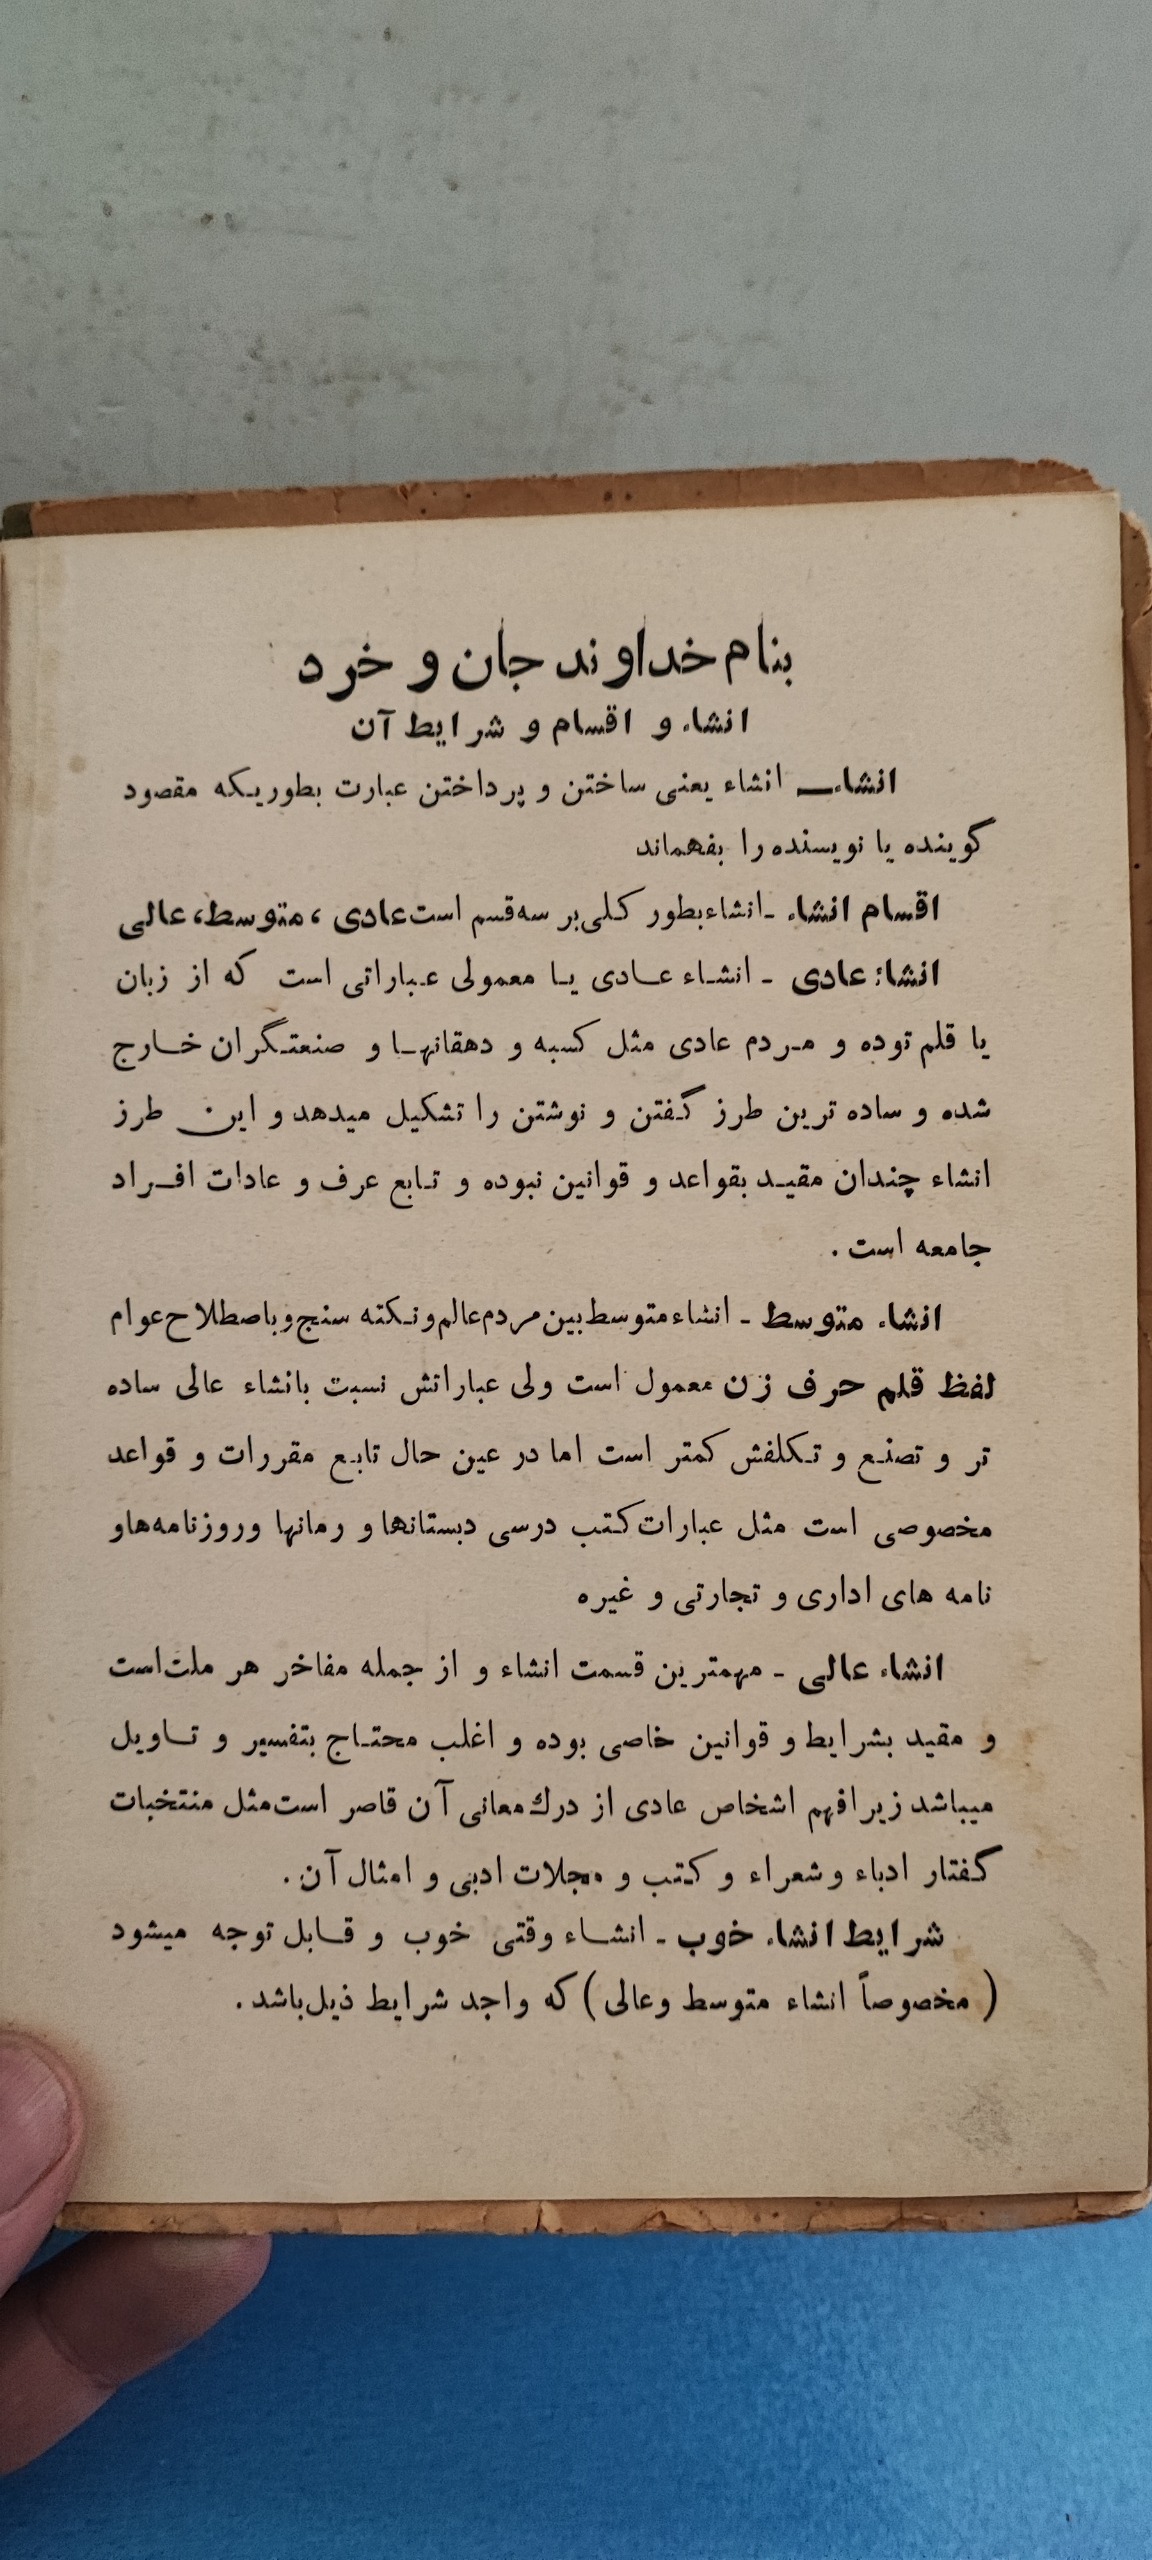 بنام خداوند جان و خرد
انشاء و اقسام و شرایط آن
انشاء ـــ انشاء یعنی ساختن و پرداختن عبارت بطوریکه مقصود
گوینده یا نویسنده را بفهماند
اقسام انشاء - انشاء بطور کلی بر سه قسم است عادی ، متوسط، عالی
انشاء عادی - انشاء عادی یا معمولی عباراتی است که از زبان
یا قلم توده و مردم عادی مثل کسبه و دهقانها و صنعتگران خارج
شده و ساده ترین طرز گفتن و نوشتن را تشکیل میدهد و این طرز
انشاء چندان مقید بقواعد و قوانین نبوده و تابع عرف و عادات افراد
جامعه است .
انشاء متوسط - انشاء متوسط بین مردم عالم و نکته سنج و باصطلاح عوام
لفظ قلم حرف زن معمول است ولی عباراتش نسبت بانشاء عالی ساده
تر و تصنع و تکلفش کمتر است اما در عین حال تابع مقررات و قواعد
مخصوصی است مثل عبارات کتب درسی دبستانها و رمانها وروزنامه‌ها و
نامه های اداری و تجارتی و غیره
انشاء عالی - مهمترین قسمت انشاء و از جمله مفاخر هر ملت است
و مقید بشرایط و قوانین خاصی بوده و اغلب محتاج بتفسیر و تاویل
میباشد زیرا فهم اشخاص عادی از درك معانی آن قاصر است مثل منتخبات
گفتار ادباء و شعراء و کتب و مجلات ادبی و امثال آن .
شرایط انشاء خوب - انشاء وقتی خوب و قابل توجه میشود
( مخصوصاً انشاء متوسط وعالی ) که واجد شرایط ذیل باشد .